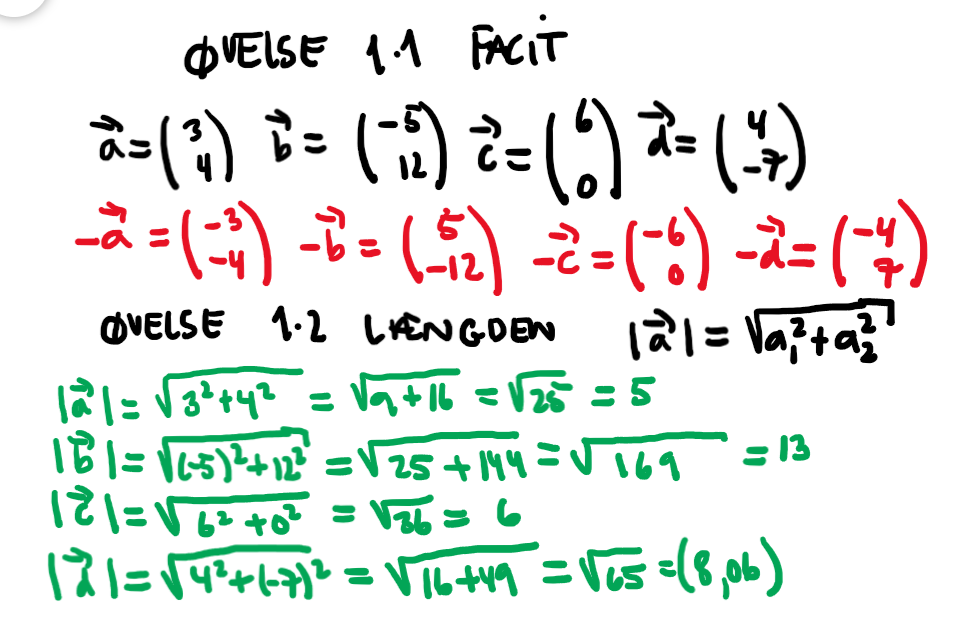 ØVELSE 1.1 FACIT
→a = (3 4) →b = (-5 12) →c = (6 0) →d = (4 -7)
-→a = (-3 -4) -→b = (5 -12) -→c = (-6 0) -→d = (-4 7)
ØVELSE 1.2 LÆNGDEN |→a| = √(a₁²+a₂²)
|→a| = √(3²+4²) = √(9+16) = √25 = 5
|→b| = √((-5)²+12²) = √(25+144) = √169 = 13
|→c| = √(6²+0²) = √36 = 6
|→d| = √(4²+(-7)²) = √(16+49) = √65 = (8,06)